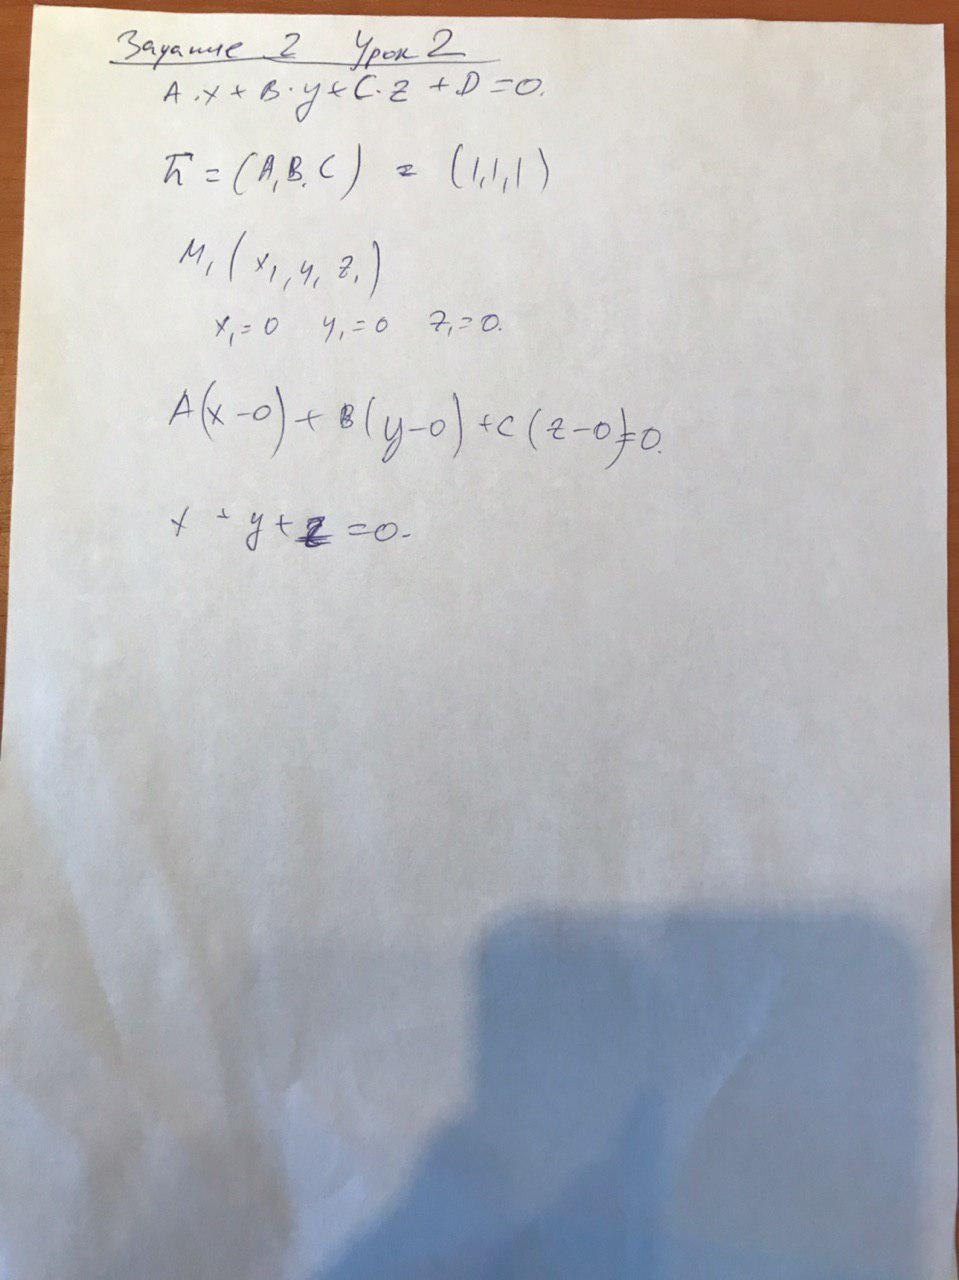 Задание 2 Урок 2
A·x + B·y + C·z + D = 0.
n̄ = (A, B, C) = (1, 1, 1)
M₁ (x₁, y₁ z₁)
x₁ = 0 y₁ = 0 z₁ = 0.
A(x-0) + B(y-0) + C(z-0) = 0.
x + y + z = 0.